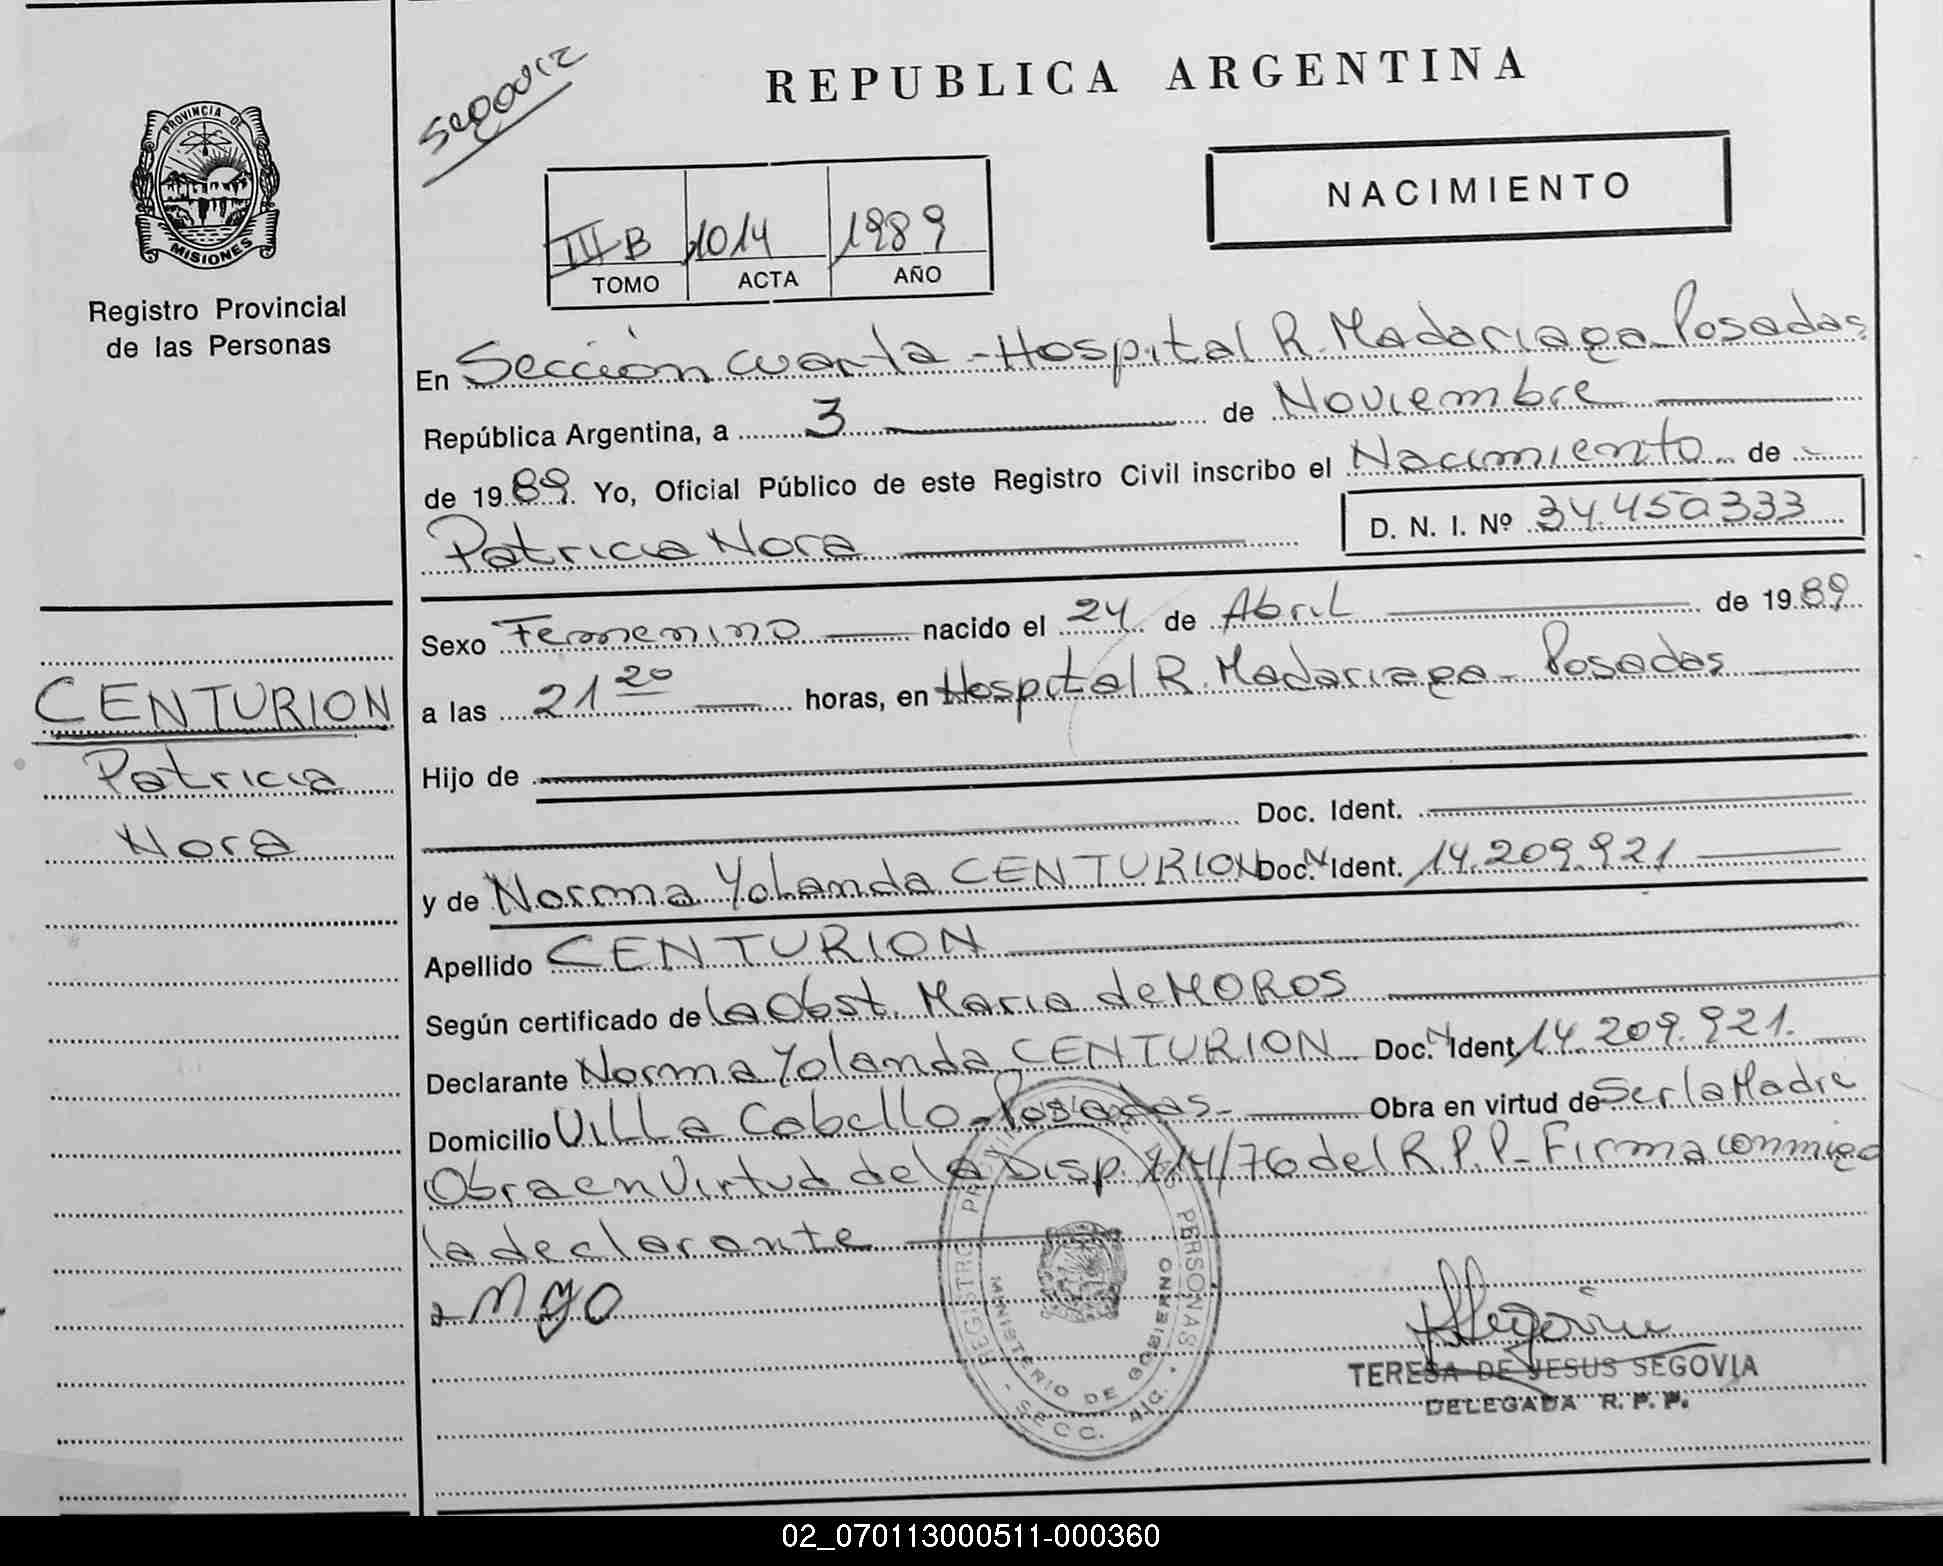 PROVINCIA DE
MISIONES
Registro Provincial
de las Personas
CENTURION
Patricia
Nora
REPUBLICA ARGENTINA
NACIMIENTO
III B 1014 1989
TOMO ACTA AÑO
En Sección cuarta - Hospital R. Madariaga - Posadas
República Argentina, a 3 de Noviembre
de 1989. Yo, Oficial Público de este Registro Civil inscribo el Nacimiento de
Patricia Nora D. N. I. Nº 34.450333
Sexo Femenino nacido el 24 de Abril de 1989
a las 21 20 horas, en Hospital R. Madariaga - Posadas
Hijo de
Doc. Ident.
y de Norma Yolanda CENTURION Doc. N Ident. 14.209.921
Apellido CENTURION
Según certificado de la Obst. Maria de MOROS
Declarante Norma Yolanda CENTURION Doc. N Ident. 14.209.921.
Domicilio Villa Cabello - Posadas - Obra en virtud de Ser la Madre
Obra en Virtud de la Disp. 114/76 del R.P.P - Firma conmigo
la declarante
REGISTRO PROVINCIAL DE LAS PERSONAS
MINISTERIO DE GOBIERNO
SECC. 4ta.
TERESA DE JESUS SEGOVIA
DELEGADA R. P. P.
02_070113000511-000360